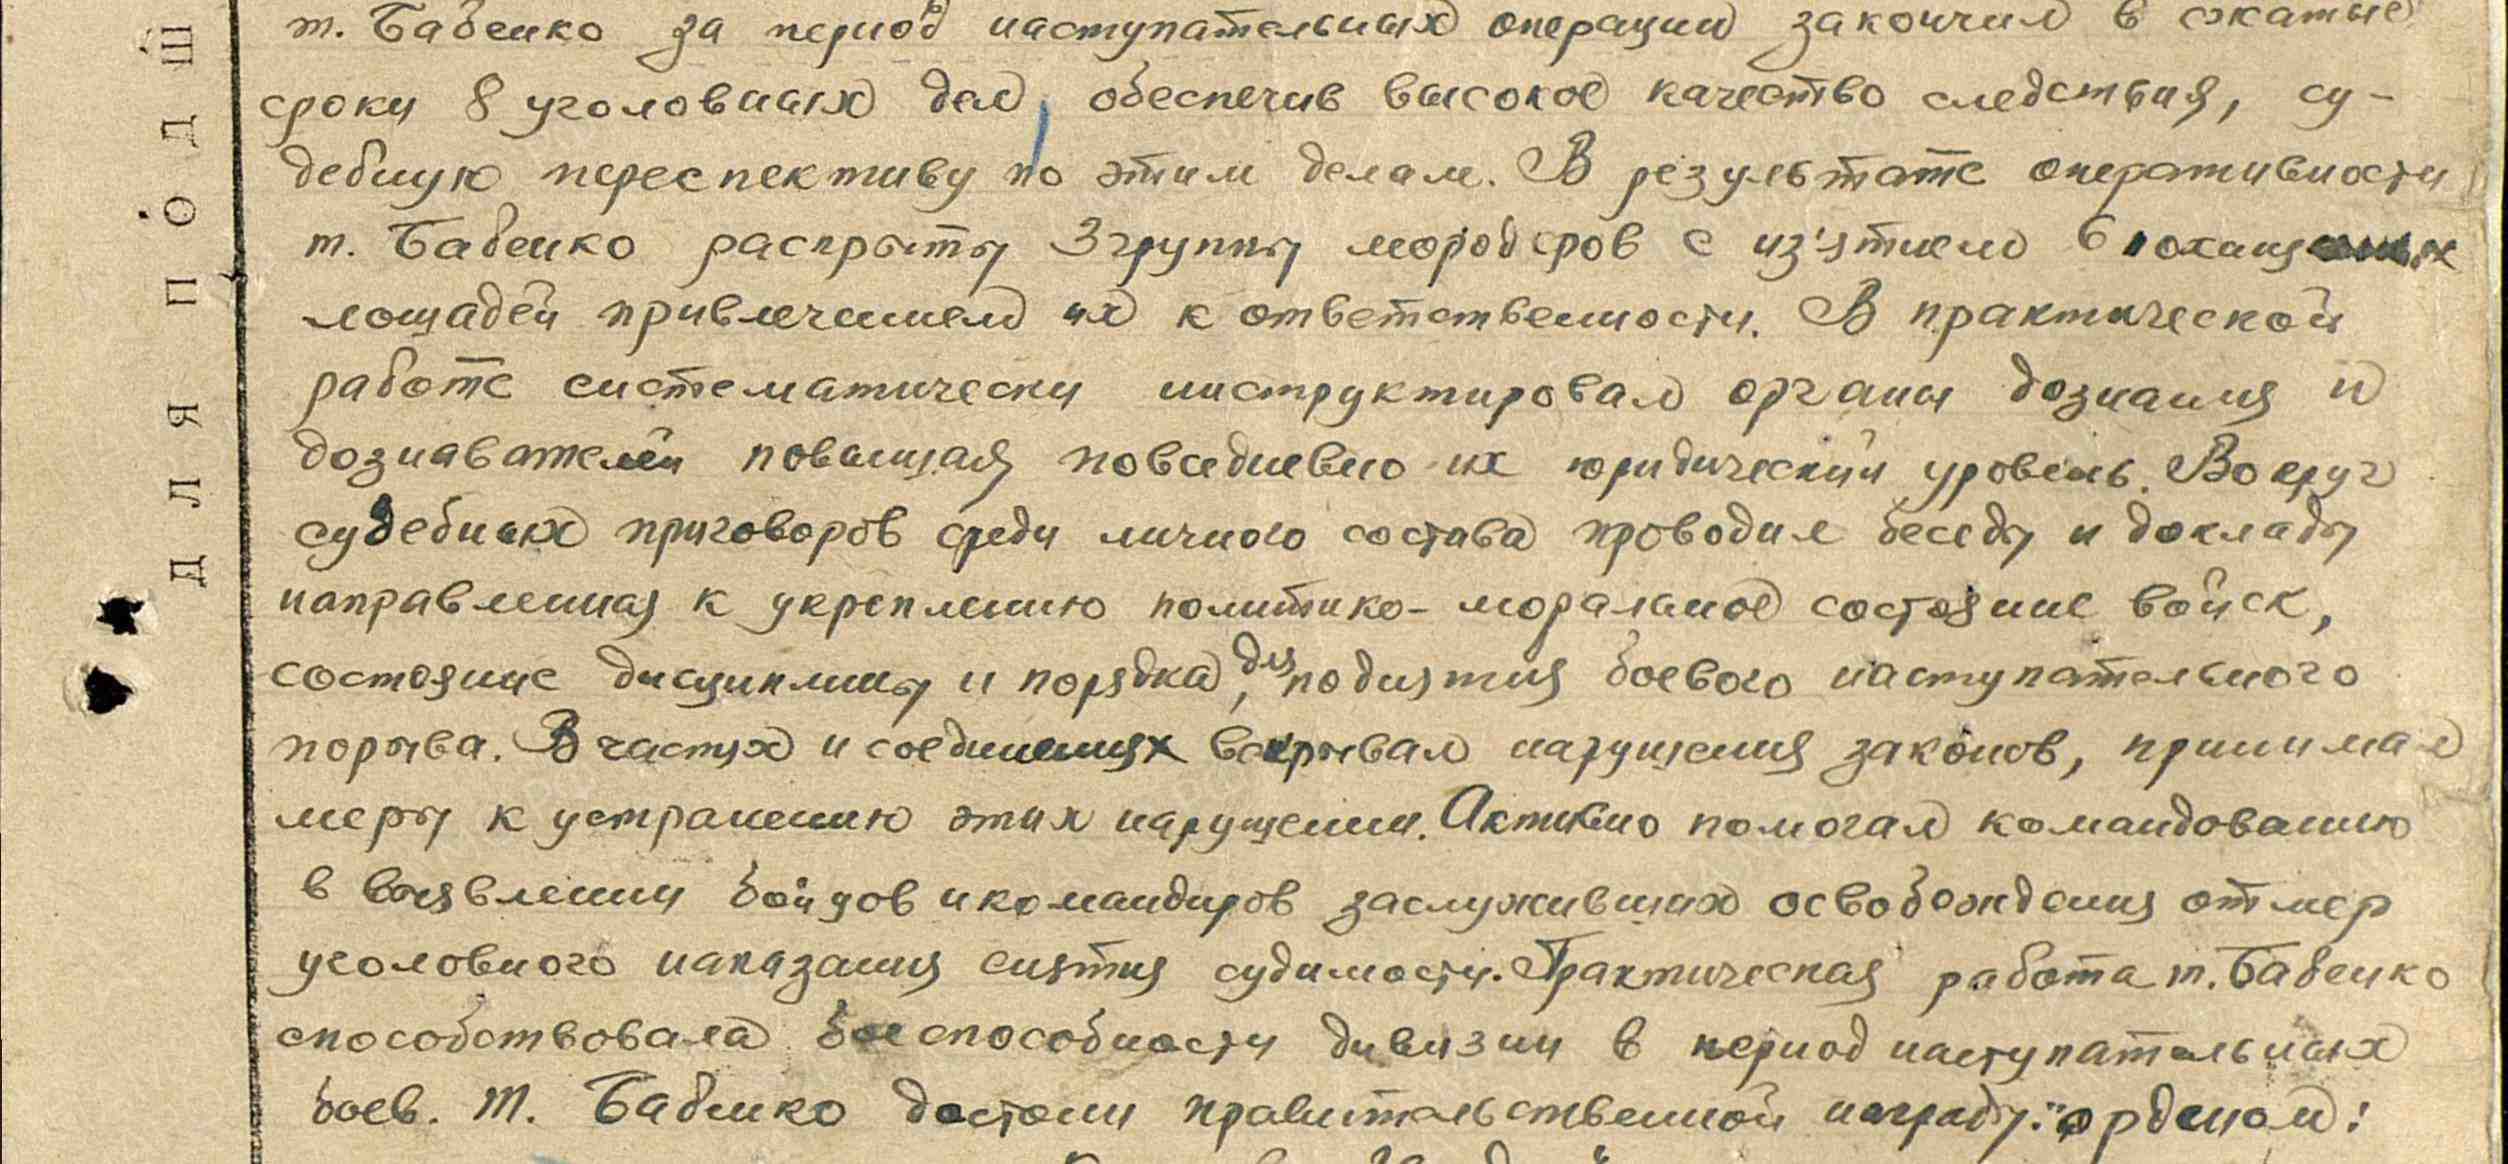 т. Бабенко за период наступательных операции закончил в сжатые
сроки 8 уголовных дел, обеспечив высокое качество следствия, су-
дебную перспективу по этим делам. В результате оперативности
т. Бабенко раскрыты 3 группы мородеров с из'ятием 6 похищенных
лошадей привлечением их к ответственности. В практической
работе систематически инструктировал органы дознания и
дознавателей повышая повседневно их юридический уровень. Вокруг
судебных приговоров среди личного состава проводил беседы и доклады
направленная к укреплению политико-моральное состояние войск,
состояние дисциплины и порядка, для поднятия боевого наступательного
порыва. В частях и соединениях вскрывал нарушения законов, принимал
меры к устранению этих нарушении. Активно помогал командованию
в выявлении бойцов и командиров заслуживших освобождения от мер
уголовного наказания снятия судимости. Практическая работа т. Бабенко
способствовала боеспособности дивизии в период наступательных
боев. Т. Бабенко достоин правительственной награды: "орденом:
ДЛЯ ПОДШ